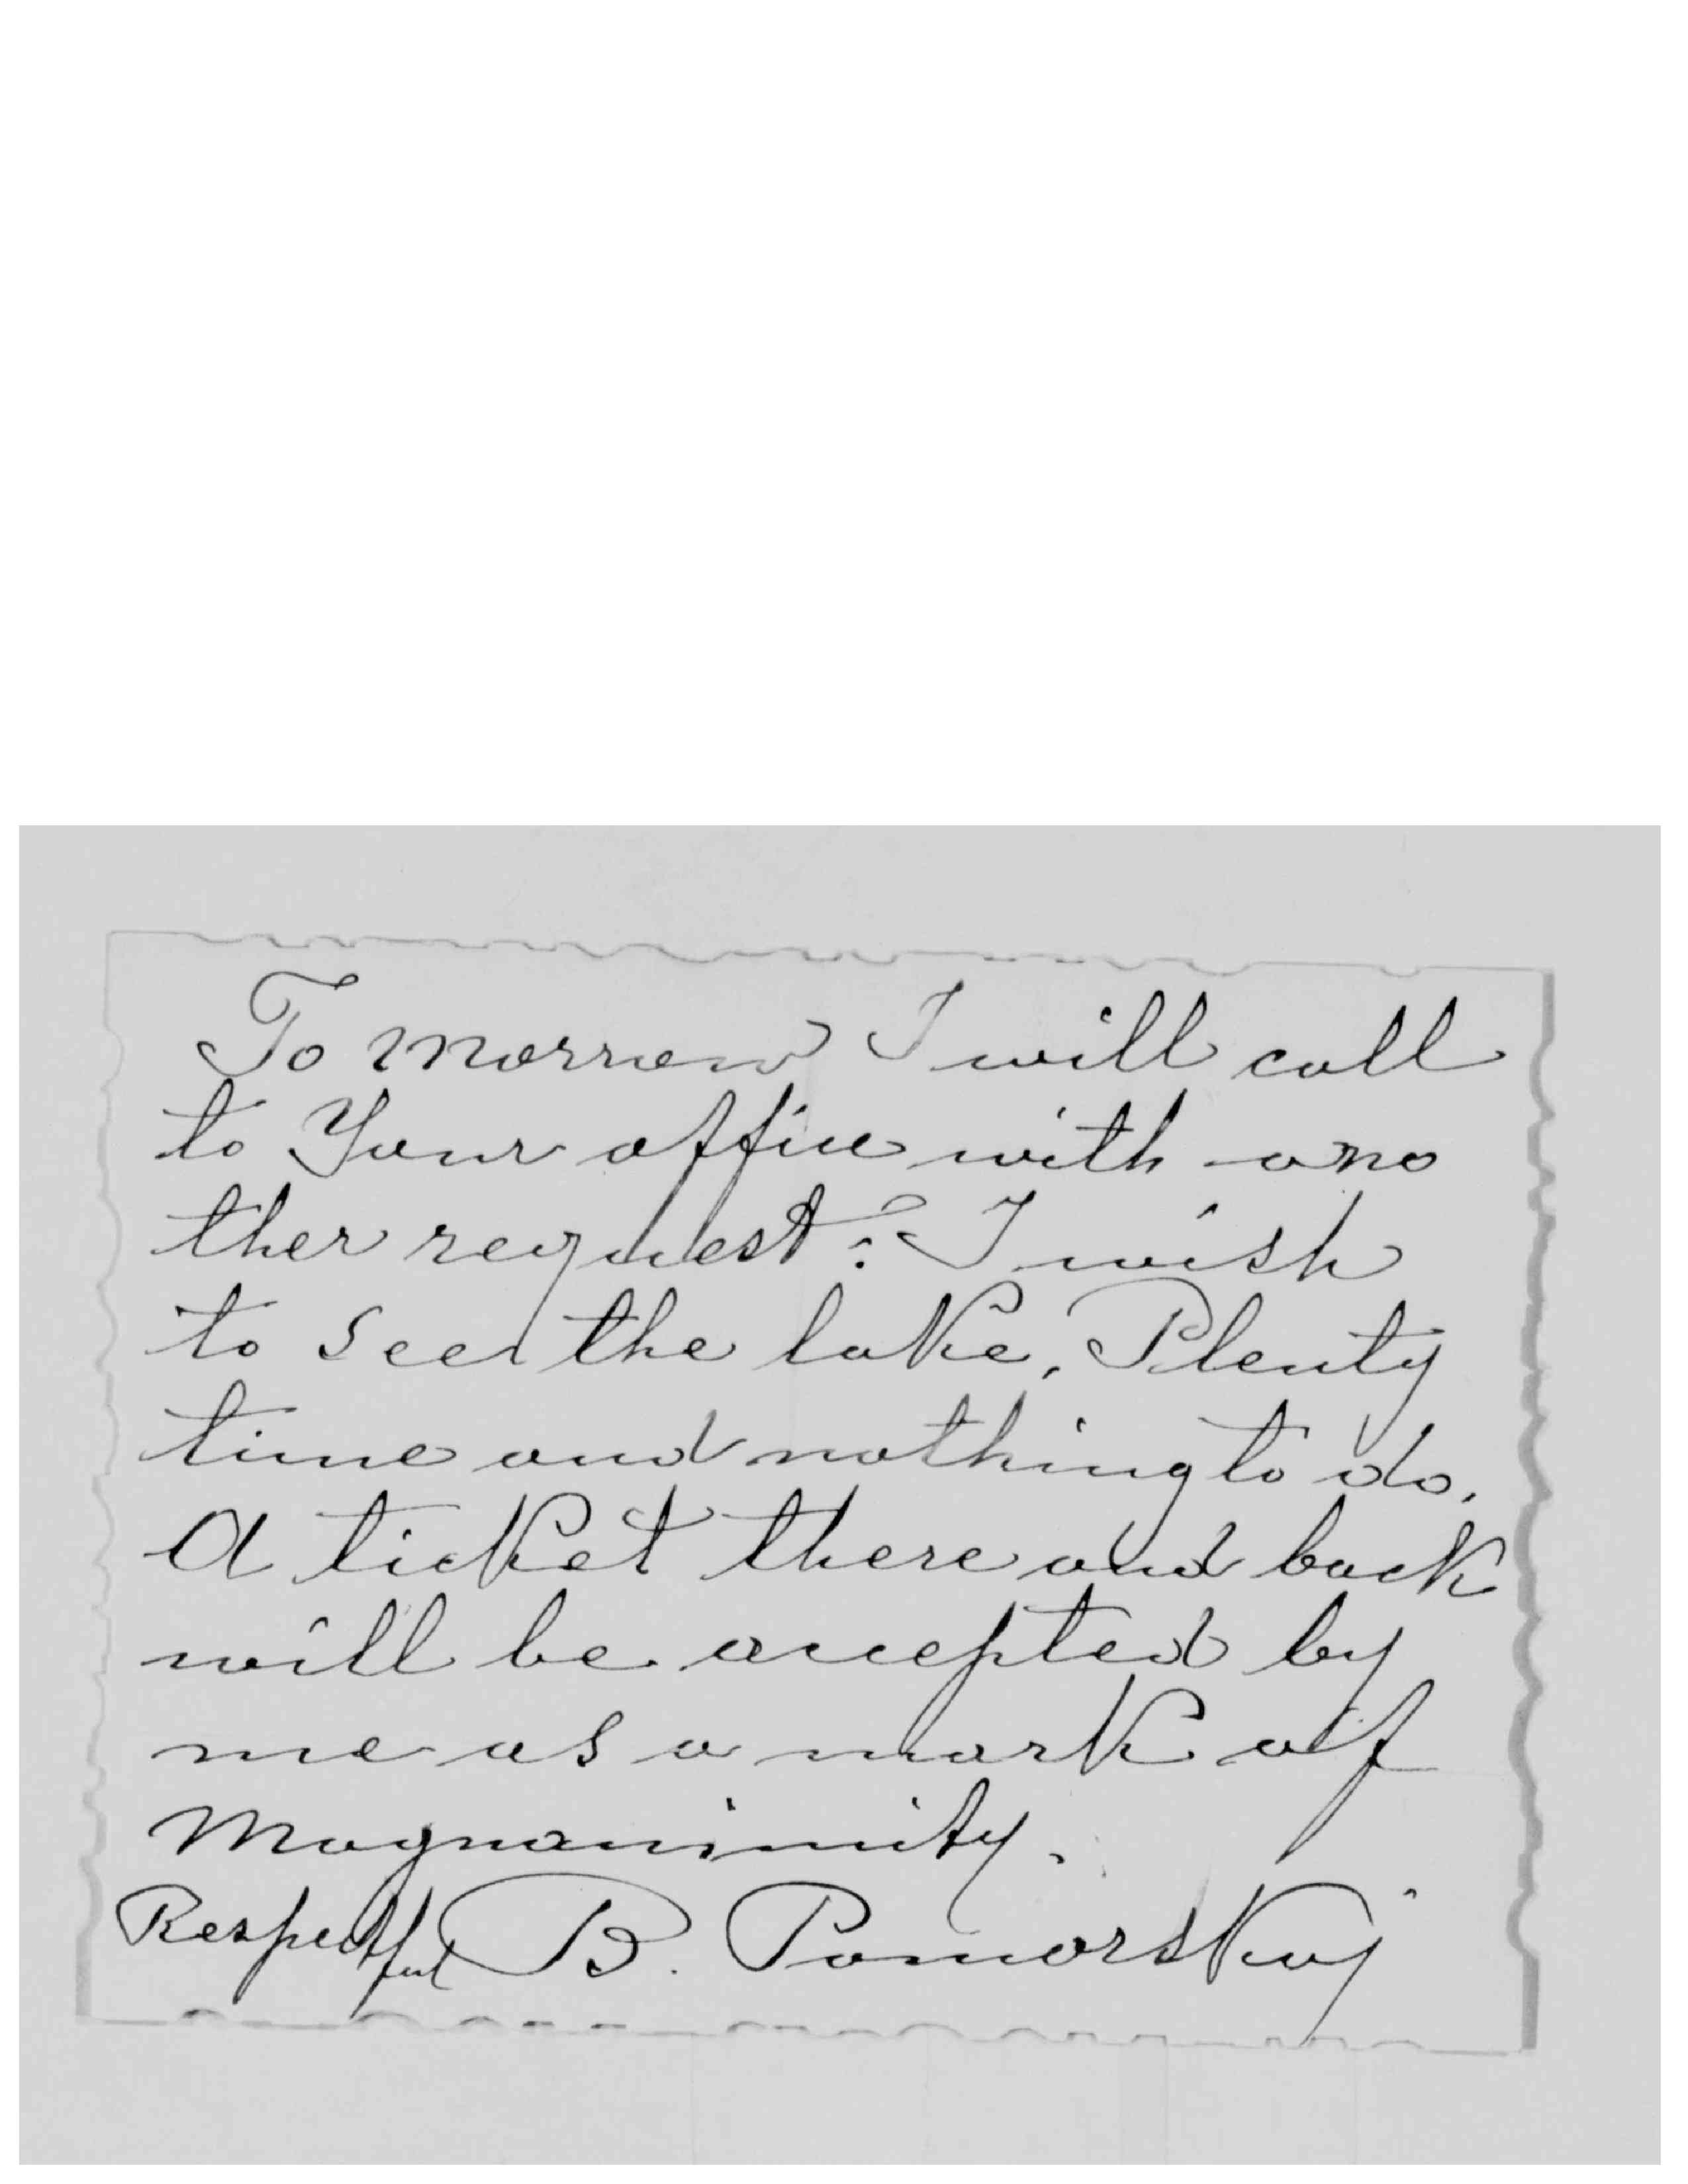 To morrow I will call
to Your office with ano
ther request: I wish
to see the lake. Plenty
time and nothing to do.
A ticket there and back
will be accepted by
me as a mark of
Magnanimity.
Respectful B. Pomorskij